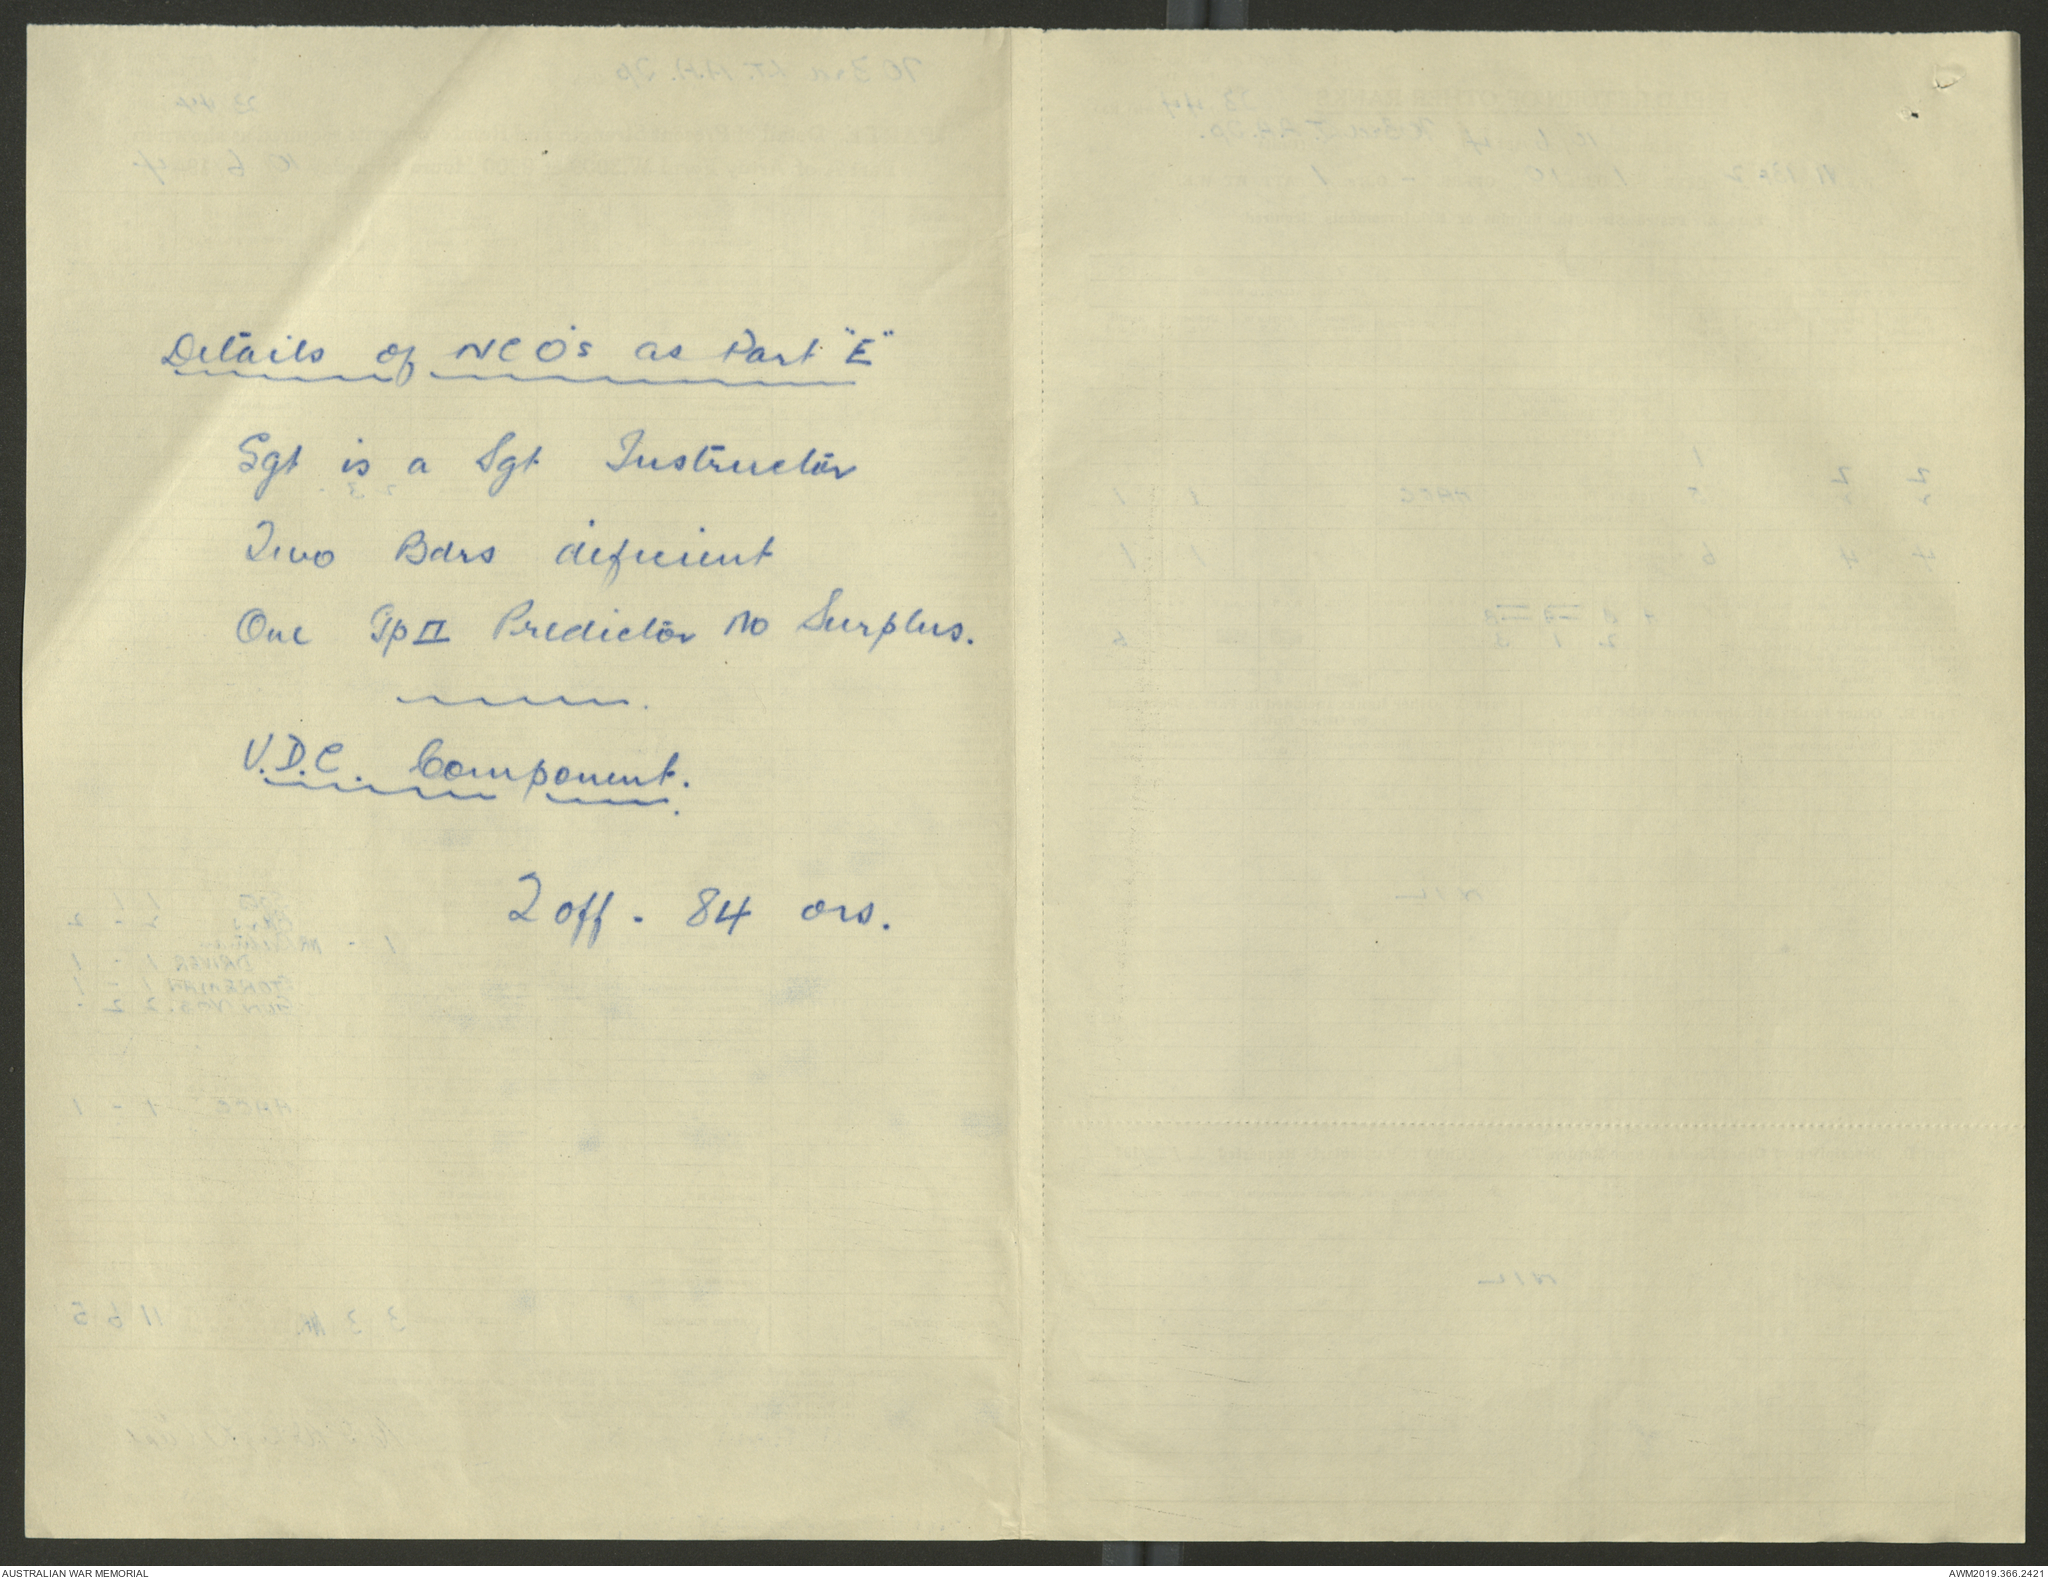 Details of NCO's as Part "E"
Sgt is a Sgt Instructor
Two Bdrs deficient
One Gp II Predictor No Surplus.
V.D.C. Component.
2 off. 84 ors.
AUSTRALIAN WAR MEMORIAL
AWM2019.366.2421